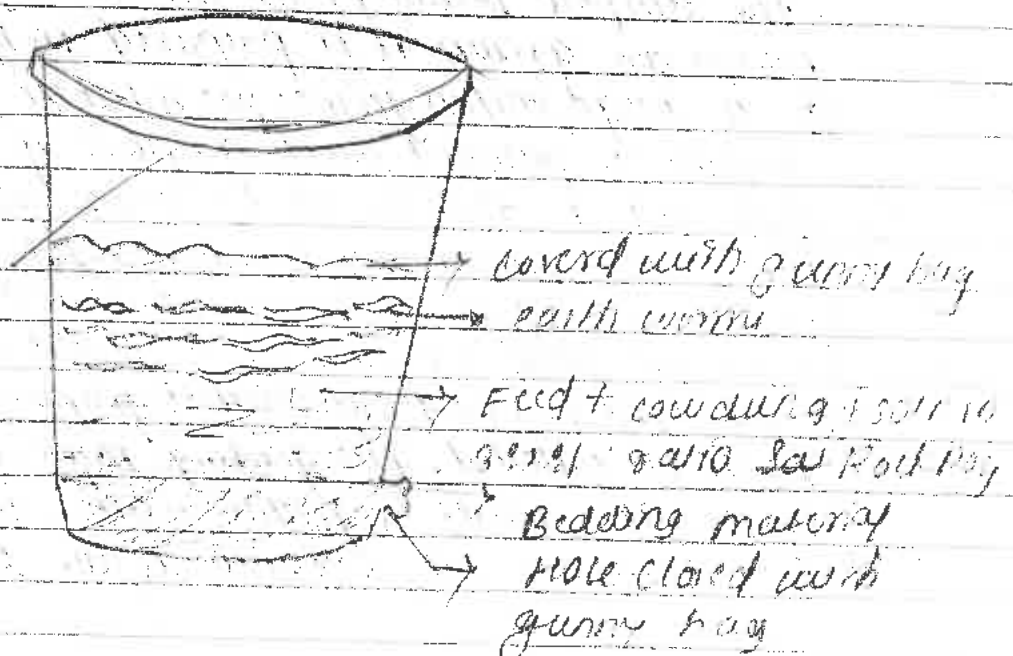 coverd with gunny bag
earth worms
Feed + cowdung +
ratio
Bedding material
Hole closed with
gunny bag